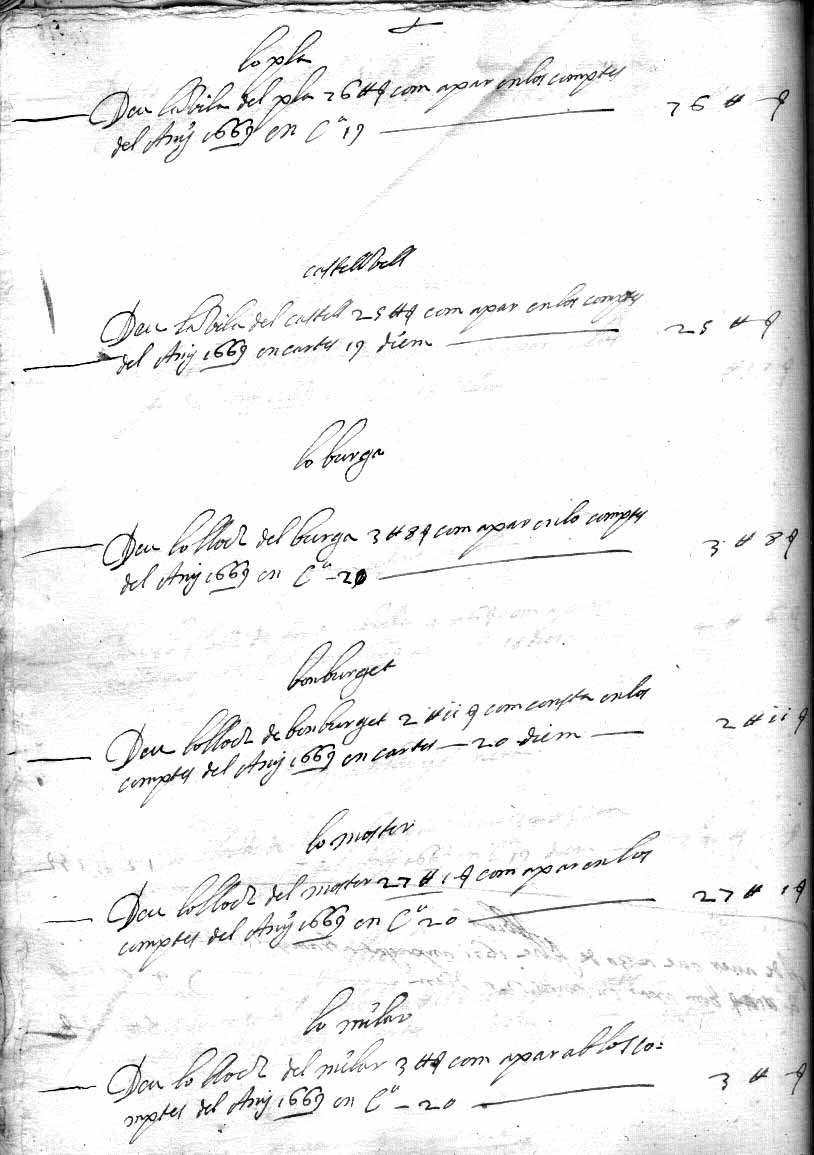 lo pla
Deu la Vila del pla 26 ₶ ꝭ com apar en los comptes
del Any 1669 en Cª 19 — 26 ₶ — ꝭ
castellvell
Deu la Vila del castell 25 ₶ ꝭ com apar en los comptes
del Any 1669 en cartes 19 diem — 25 ₶ ꝭ
lo burga
Deu lo lloch del burga 3 ₶ 8 ꝭ com apar en lo comptes
del Any 1669 en Cª — 20 — 3 ₶ 8 ꝭ
bonburget
Deu lo lloch de bonburget 2 ₶ ii ꝭ com consta en los
comptes del Any 1669 en cartes — 20 diem — 2 ₶ ii ꝭ
lo master
Deu lo lloch del master 27 ₶ 1 ꝭ com apar en los
comptes del Any 1669 en Cª 20 — 27 ₶ 1 ꝭ
lo milar
Deu lo lloch del milar 3 ₶ ꝭ com apar ab los co=
mptes del Any 1669 en Cª — 20 — 3 ₶ — ꝭ